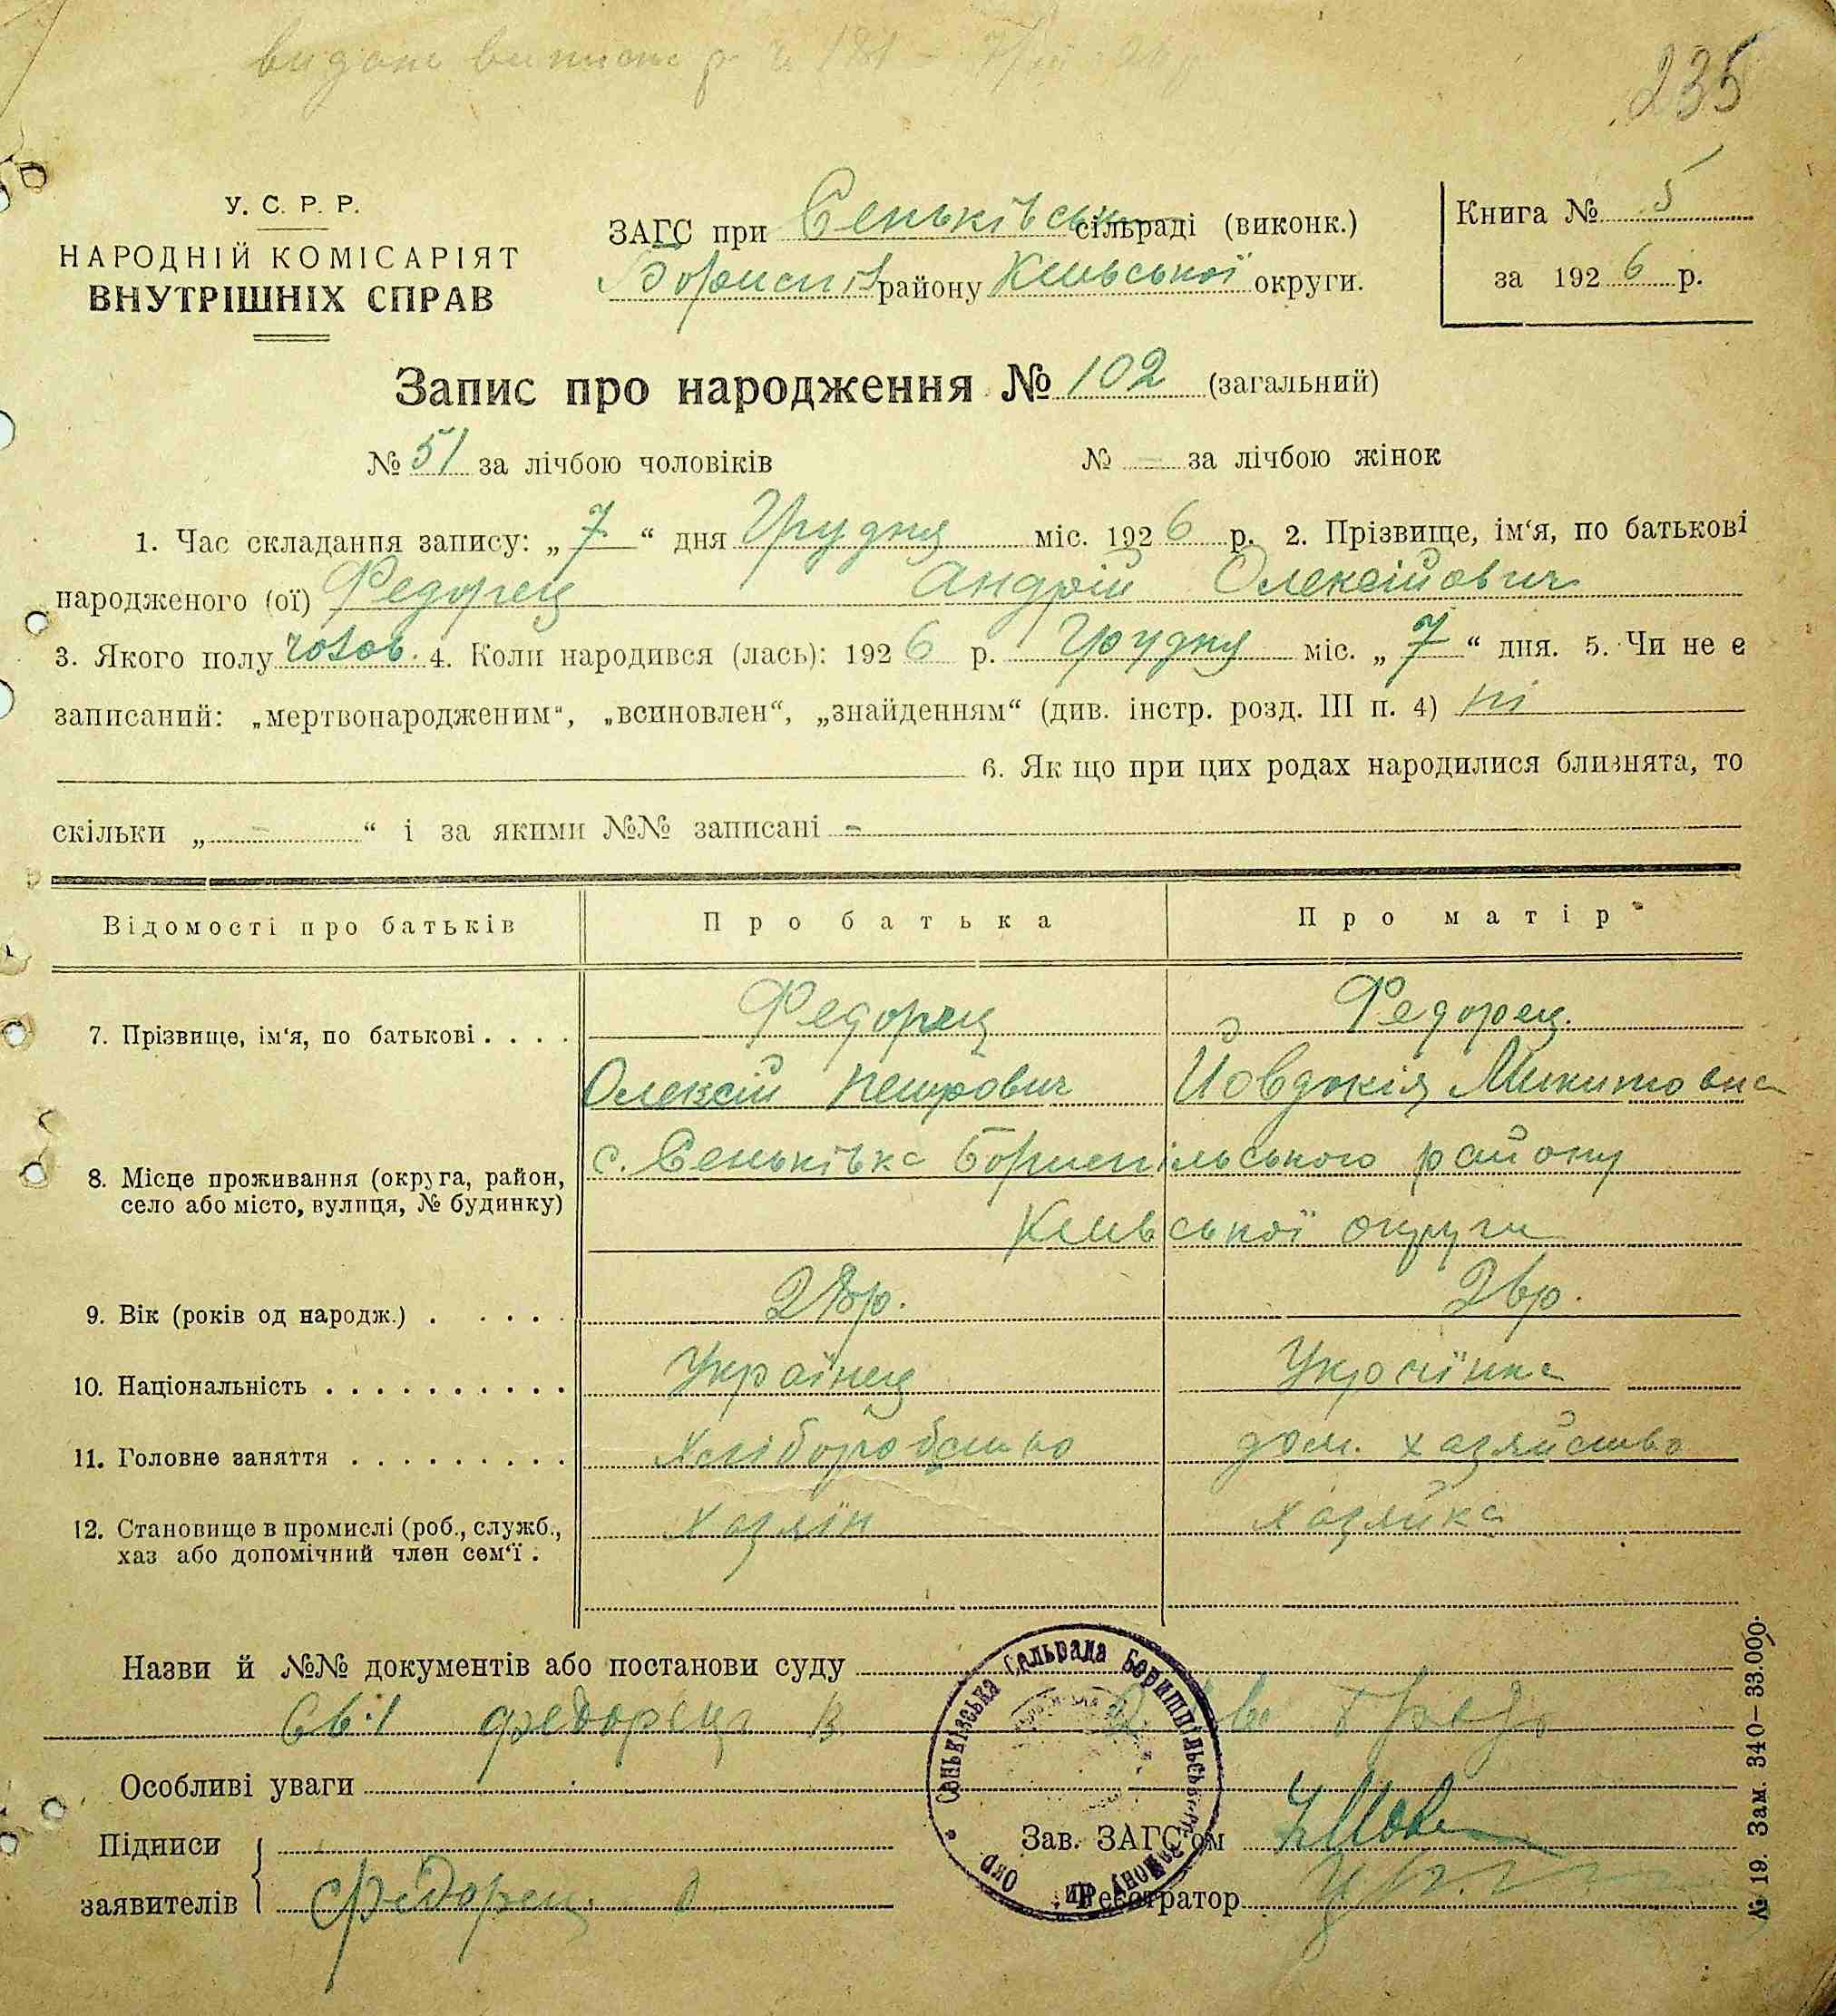 видано
235
У. С. Р. Р.
НАРОДНІЙ КОМІСАРІЯТ
ВНУТРІШНІХ СПРАВ
ЗАГС при Сеньківськ сільраді (виконк.)
Бориспіл району Київської округи.
Книга № 5
за 1926 р.
Запис про народження № 102 (загальний)
№ 51 за лічбою чоловіків № - за лічбою жінок
1. Час складання запису: „7“ дня Грудня міс. 1926 р. 2. Прізвище, ім‘я, по батькові
народженого (ої) Федорец Андрій Олексійович
3. Якого полу чолов. 4. Коли народився (лась): 1926 р. Грудня міс. „7“ дня. 5. Чи не є
записаний: „мертвонародженим“, „всиновлен“, „знайденням“ (див. інстр. розд. III п. 4) ні
6. Як що при цих родах народилися близнята, то
скільки „ - “ і за якими №№ записані -
Відомості про батьків Про батька Про матір
7. Прізвище, ім‘я, по батькові . . . . Федорец Федорец.
Олексій Петрович Йовдокія Микитовна
8. Місце проживання (округа, район, с. Сеньківка Бориспільського району
село або місто, вулиця, № будинку)
Київської округи
9. Вік (років од народж.) . . . . . 28р. 26р.
10. Національність . . . . . . . . . . Українец Українка
11. Головне заняття . . . . . . . . . Хліборобство дом. хазяйство
12. Становище в промислі (роб., служб., Хазяїн Хазяйка
хаз або допомічний член сем‘ї .
Назви й №№ документів або постанови суду
Св. 1 Федорец В.
Особливі уваги
Підписи
заявителів Федорец О
Зав. ЗАГС‘ом
Реєстратор
Сеньківська Сельрада Бориспільського Району Окр.
№ 19. Зам. 340–33.000.